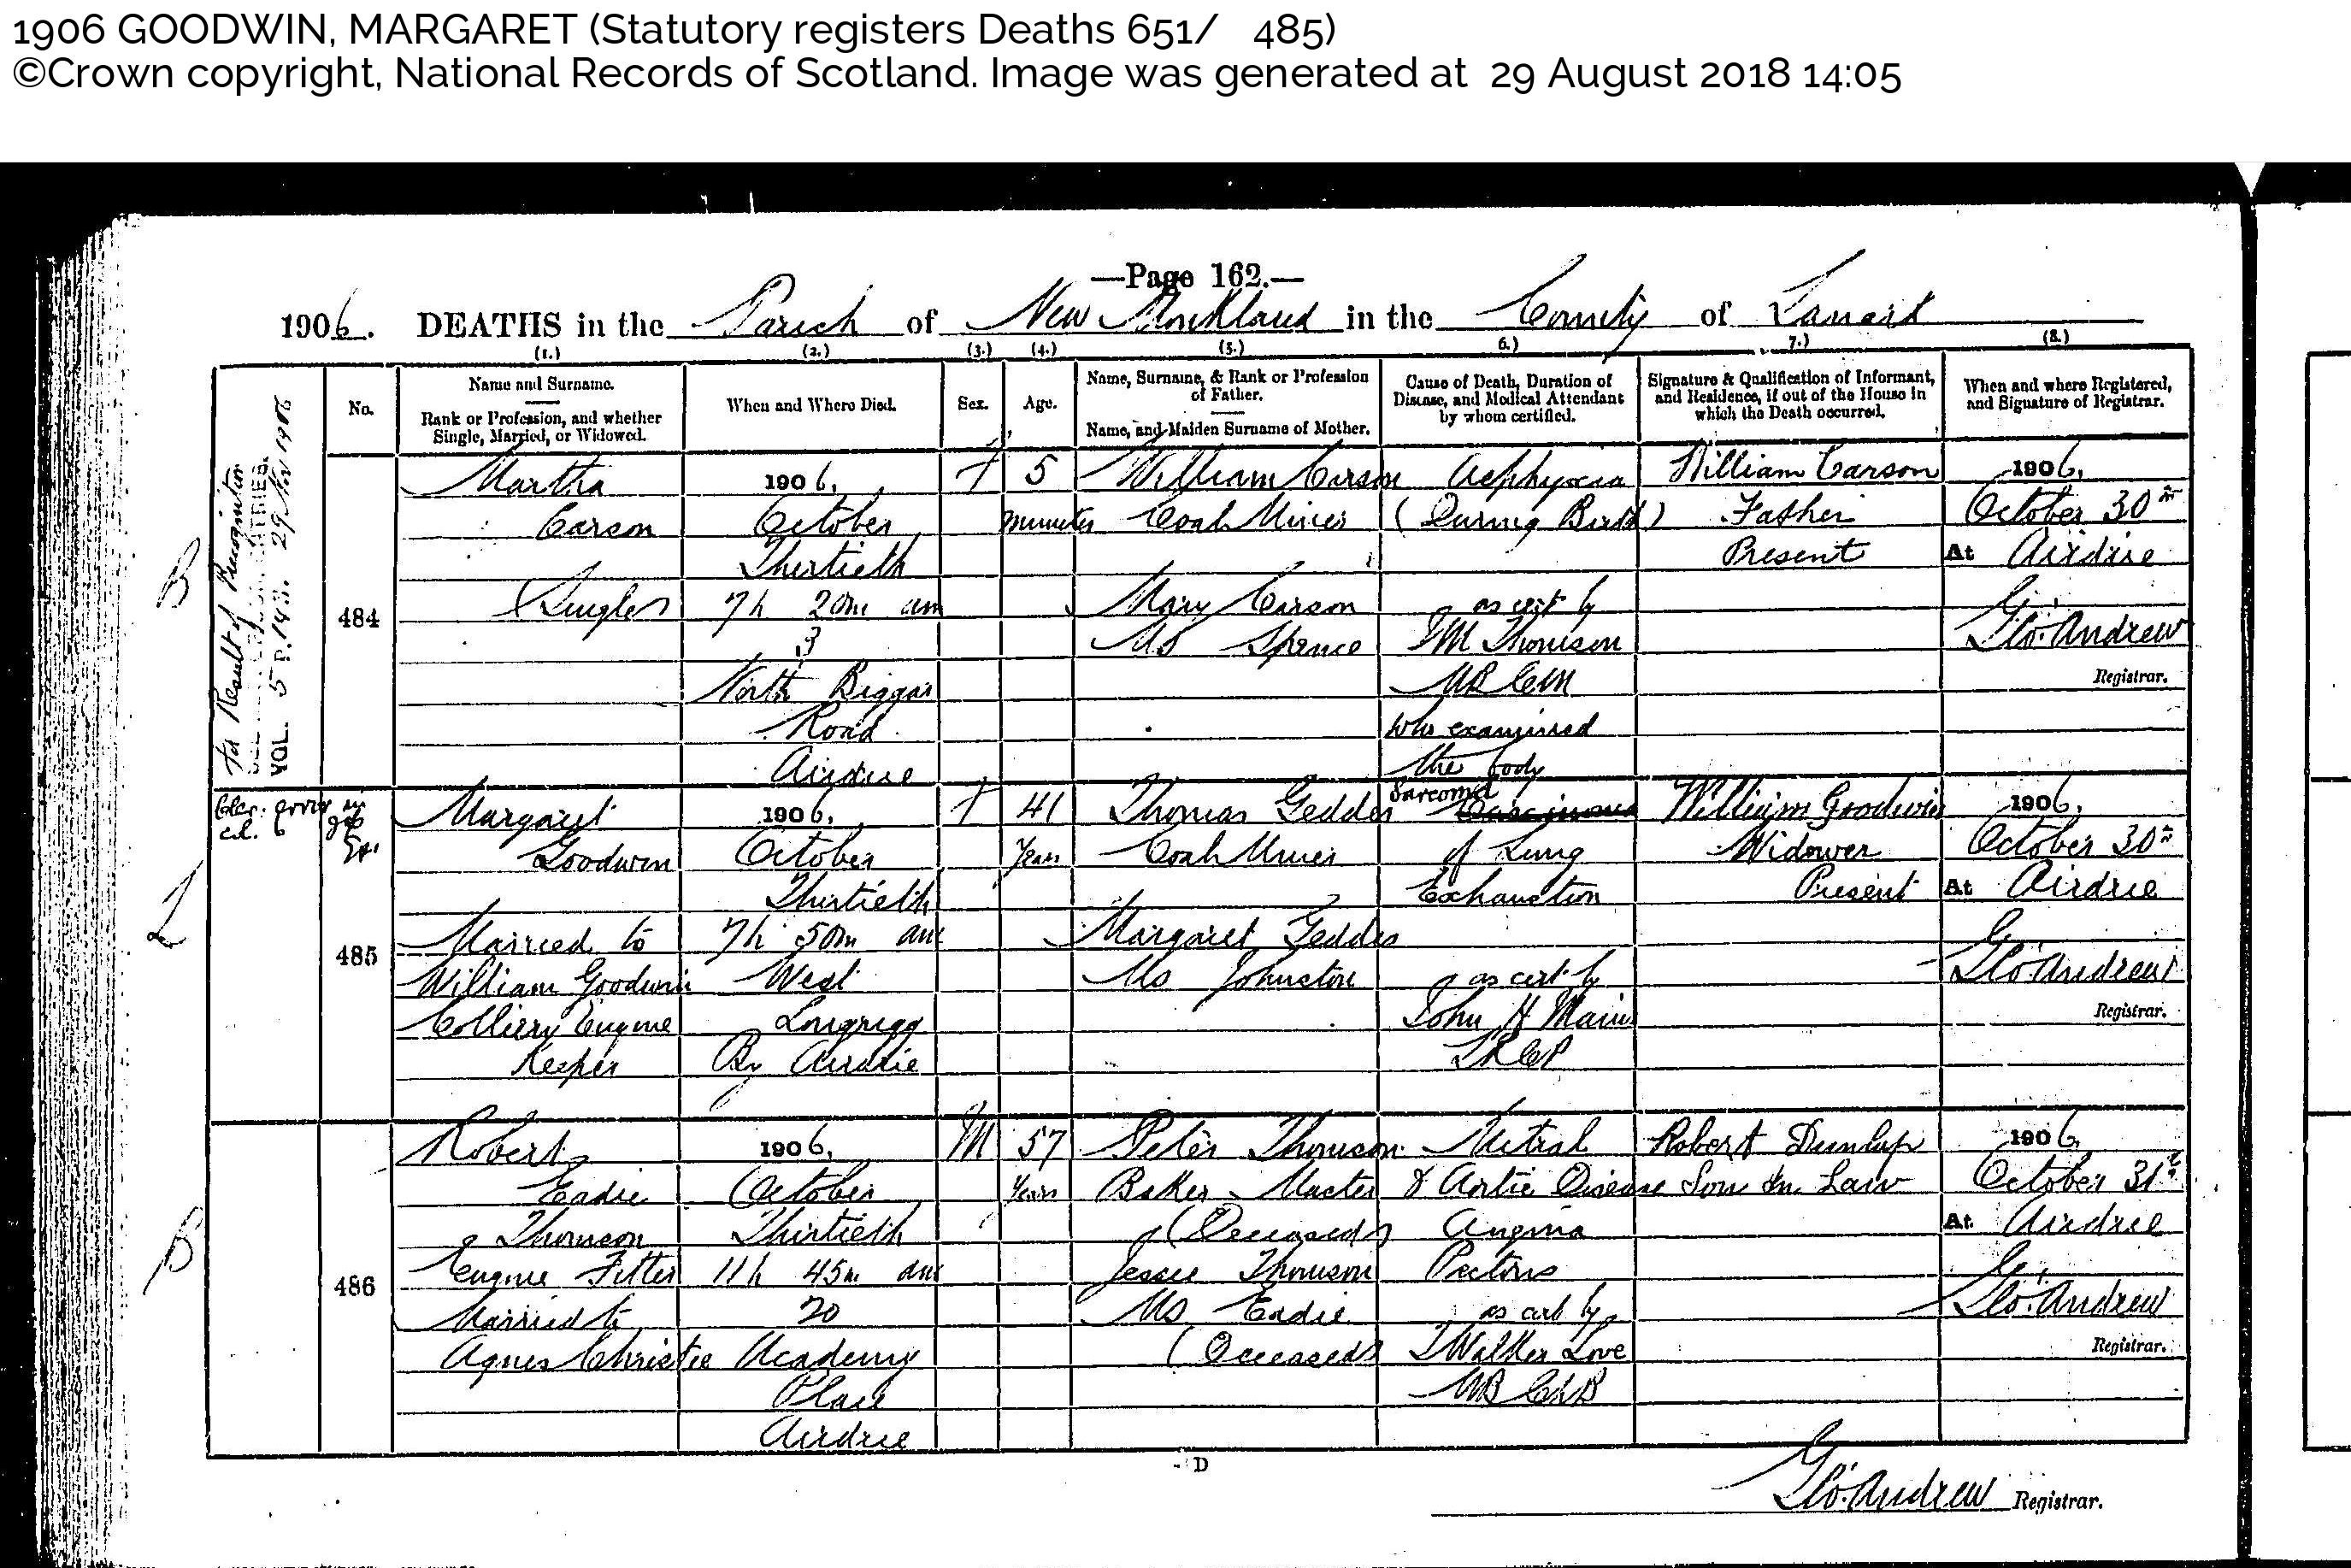 1906 GOODWIN, MARGARET (Statutory registers Deaths 651/ 485)
©Crown copyright, National Records of Scotland. Image was generated at 29 August 2018 14:05
—Page 162.—
1906. DEATHS in the Parish of New Monkland in the County of Lanark
(1.) (2.) (3.) (4.) (5.) 6.) 7.) (8.)
No.
Name and Surname.
Rank or Profession, and whether
Single, Married, or Widowed.
When and Where Died.
Sex.
Age.
Name, Surname, & Rank or Profession
of Father.
Name, and Maiden Surname of Mother.
Cause of Death, Duration of
Disease, and Medical Attendant
by whom certified.
Signature & Qualification of Informant,
and Residence, if out of the House in
which the Death occurred.
When and where Registered,
and Signature of Registrar.
For Result of Precognition
VOL. 5 P. 148. 29 Nov 1906
B
484
Martha
Carson
(Single)
1906,
October
Thirtieth
7h 20m am
3
North Biggar
Road
Airdrie
F
5
minutes
William Carson
Coal Miner
Mary Carson
MS Spence
Asphyxia
(During Birth)
as cert by
M Thomson
MB CM
who examined
the body
William Carson
Father
Present
1906,
October 30th
At Airdrie
Geo. Andrew
Registrar.
Cler. error in
col. 6
L
485
Margaret
Goodwin
Married to
William Goodwin
Colliery Engine
Keeper
1906,
October
Thirtieth
7h 50m am
West
Longrigg
By Airdrie
F
41
Years
Thomas Geddes
Coal Miner
Margaret Geddes
MS Johnston
Sarcoma
Carcinoma
of Lung
Exhaustion
as cert by
John H Main
LRCP
William Goodwin
Widower
Present
1906,
October 30th
At Airdrie
Geo. Andrew
Registrar.
B
486
Robert
Eadie
Thomson
Engine Fitter
Married to
Agnes Christie
1906,
October
Thirtieth
11h 45m am
20
Academy
Place
Airdrie
M
57
Years
Peter Thomson
Baker Master
(Deceased)
Jessie Thomson
MS Eadie
(Deceased)
Mitral
& Aortic Disease
Angina
Pectoris
as cert by
Walker Love
MB ChB
Robert Dunlop
Son in Law
1906
October 31st
At Airdrie
Geo. Andrew
Registrar.
D
Geo. Andrew Registrar.